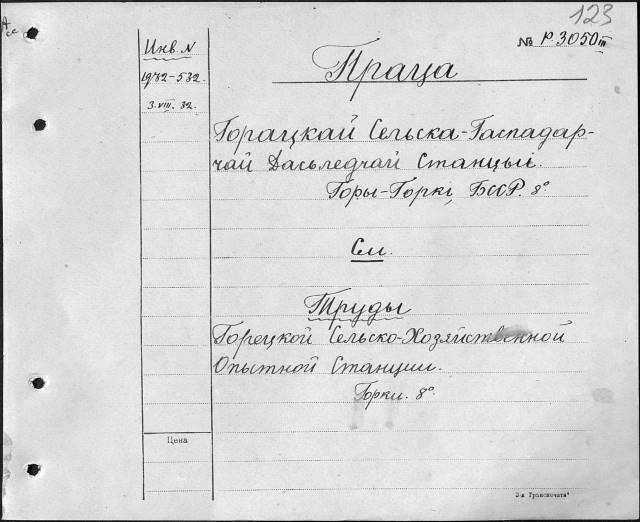 123
№ Р3050III
Инв. N
1932-532
3.VIII.32.
Праца
Горацкай Сельска-Гаспадар-
чай Дасьледчай Станцыі.
Горы-Горкі, БССР. 8°
См.
Труды
Горецкой Сельско-Хозяйственной
Опытной Станции.
Горки. 8°
Цена